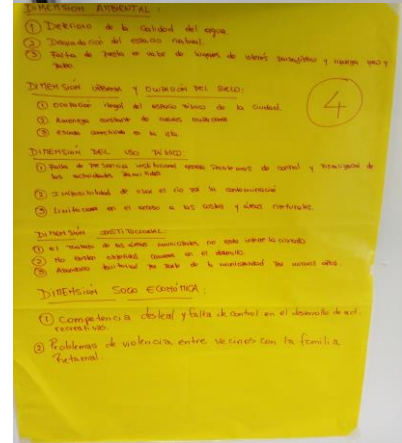 DIMENSION AMBIENTAL:
① Deterioro de la Calidad del agua.
② Degradacion del espacio natural.
③ Falta de puesta en valor de lugares de interés paisagístico y
DIMENSION URBANA Y OCUPACIÓN DEL SUELO:
① Ocupación ilegal del espacio público de la ciudad.
② Amenaza constante de nuevas ocupaciones
③ en la isla.
DIMENSION DEL USO PÚBLICO:
① Falta de presencia institucional control y fiscalización de
las actividades
② Imposibilidad de usar el río por la contaminación
③ Limitaciones en el acceso a las costas y áreas naturales.
DIMENSION INSTITUCIONAL:
① El trabajo de las áreas municipales no está
② No existen objetivos comunes en el
③ Abandono territorial por parte de la municipalidad por muchos años.
DIMENSION SOCIO ECONÓMICA:
① Competencia desleal y falta de control en el desarrollo de act.
recreativas.
② Problemas de violencia entre vecinos con la familia
4